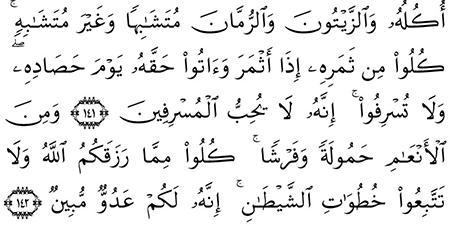 أُكُلُهُۥ وَٱلزَّيْتُونَ وَٱلرُّمَّانَ مُتَشَٰبِهًا وَغَيْرَ مُتَشَٰبِهٍۚ
كُلُوا۟ مِن ثَمَرِهِۦٓ إِذَآ أَثْمَرَ وَءَاتُوا۟ حَقَّهُۥ يَوْمَ حَصَادِهِۦۖ
وَلَا تُسْرِفُوٓا۟ۚ إِنَّهُۥ لَا يُحِبُّ ٱلْمُسْرِفِينَ ١٤١ وَمِنَ
ٱلْأَنْعَٰمِ حَمُولَةً وَفَرْشًاۚ كُلُوا۟ مِمَّا رَزَقَكُمُ ٱللَّهُ وَلَا
تَتَّبِعُوا۟ خُطُوَٰتِ ٱلشَّيْطَٰنِۚ إِنَّهُۥ لَكُمْ عَدُوٌّ مُّبِينٌ ١٤٢